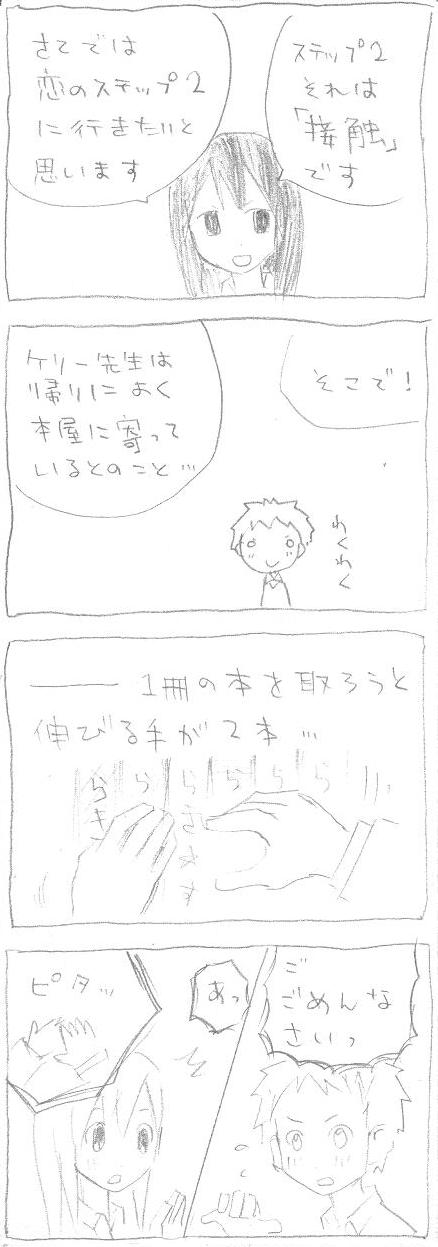 ステップ2
それは
「接触」
です
さてでは
恋のステップ2
に行きたいと
思います
そこで!
ケリー先生は
帰りによく
本屋に寄って
いるとのこと…
わくわく
――1冊の本を取ろうと
伸びる手が2本…
ご
ごめんな
さいっ
あっ
ピタッ